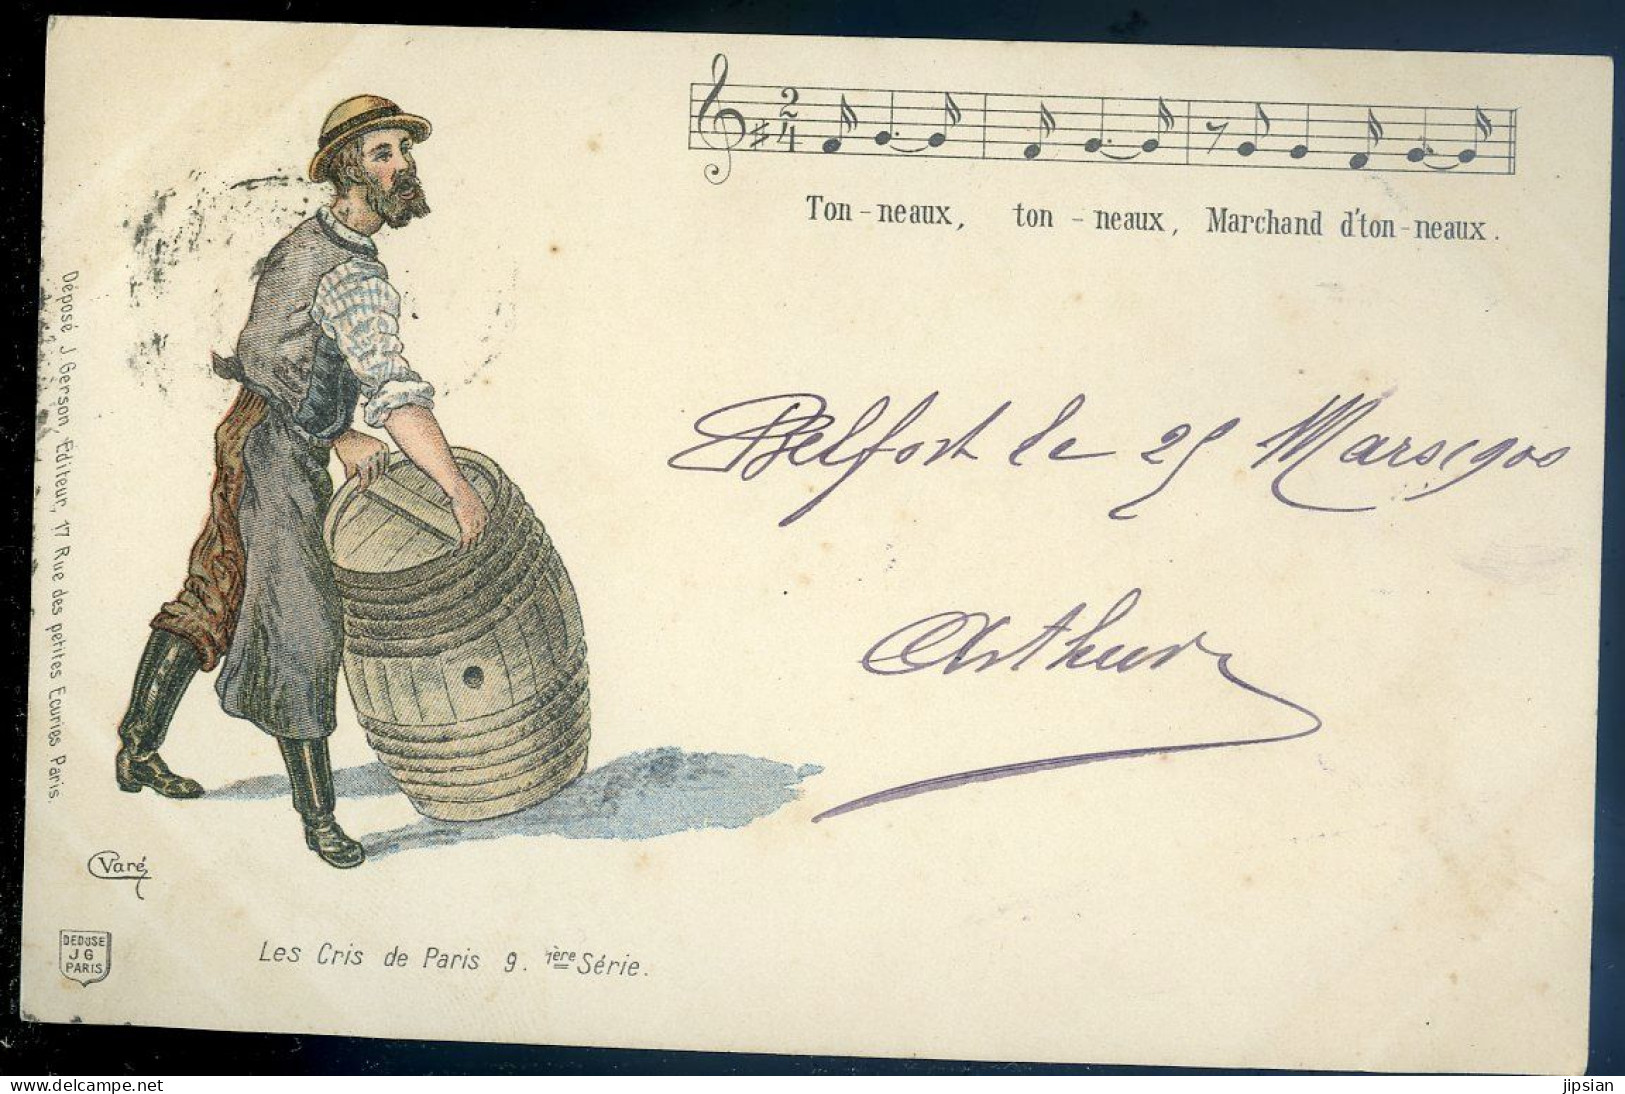 2
4
Ton-neaux, ton-neaux, Marchand d'ton-neaux.
Belfort le 25 Mars 1900
Arthur
Déposé J Gerson, Editeur, 17 Rue des petites Ecuries Paris.
Varé
DEPOSE
J G
PARIS
Les Cris de Paris 9. 1ère Série.
jipsian